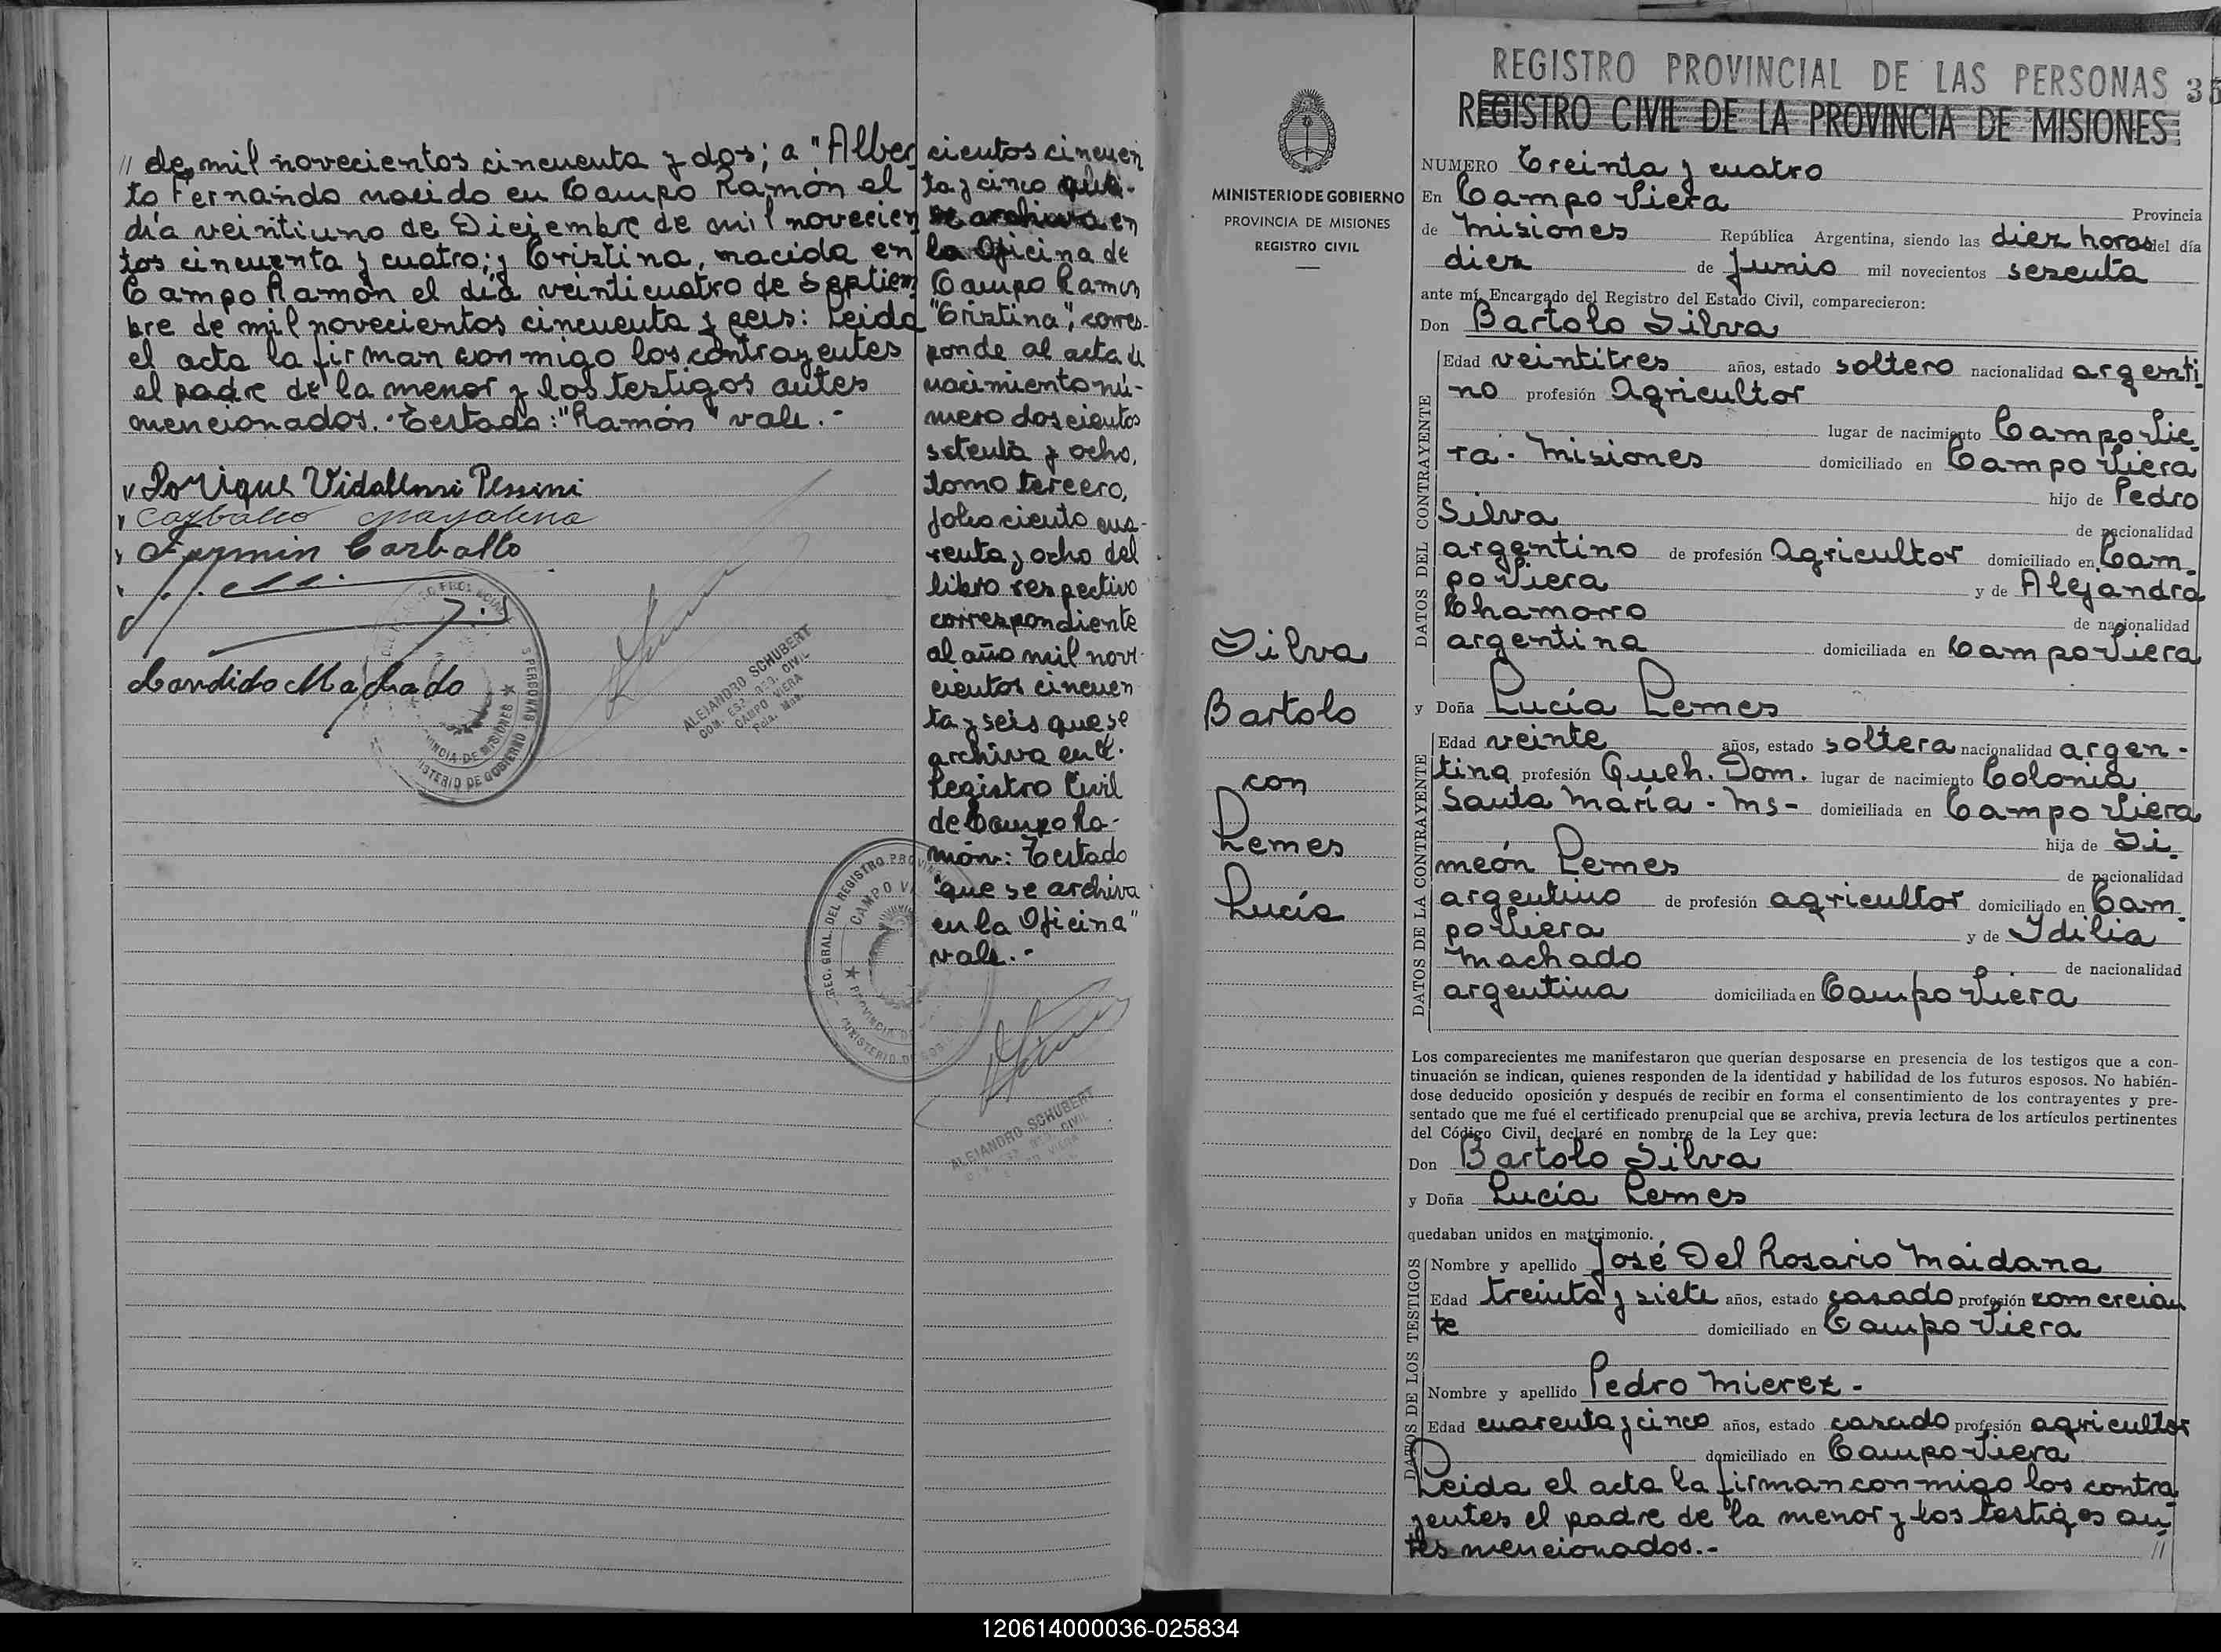 // de mil novecientos cincuenta y dos; a "Alber
to Fernando nacido en Campo Ramón el
día veintiuno de Diciembre de mil novecien
tos cincuenta y cuatro; y Cristina, nacida en
Campo Ramón el día veinticuatro de Septiem
bre de mil novecientos cincuenta y seis: Leida
el acta la firman conmigo los contrayentes
el padre de la menor y los testigos antes
mencionados.- Testado: "Ramón" vale.-
Vidal Pessini
Carballo
Fermin Carballo
Candido Machado
ALEJANDRO SCHUBERT
CAMPO VIERA
cientos cincuen
ta y cinco que
se archiva en
la Oficina de
Campo Ramon
"Cristina", corres-
ponde al acta de
nacimiento nú-
mero doscientos
setenta y ocho,
tomo tercero,
folio ciento cua-
renta y ocho del
libro respectivo
correspondiente
al año mil nove
cientos cincuen
ta y seis que se
archiva en el
Registro Civil
de Campo Ra-
món: Testado
"que se archiva
en la Oficina"
vale.-
ALEJANDRO SCHUBERT
MINISTERIO DE GOBIERNO
PROVINCIA DE MISIONES
REGISTRO CIVIL
Silva
Bartolo
con
Lemes
Lucía
REGISTRO PROVINCIAL DE LAS PERSONAS
REGISTRO CIVIL DE LA PROVINCIA DE MISIONES
NUMERO Treinta y cuatro
En Campo Viera Provincia
de Misiones República Argentina, siendo las diez horas del día
diez de Junio mil novecientos sesenta
ante mí, Encargado del Registro del Estado Civil, comparecieron:
Don Bartolo Silva
DATOS DEL CONTRAYENTE
Edad veintitres años, estado soltero nacionalidad argenti
no profesión Agricultor
lugar de nacimiento Campo Vie
ra. Misiones domiciliado en Campo Viera
hijo de Pedro
Silva de nacionalidad
argentino de profesión Agricultor domiciliado en Cam
po Viera y de Alejandra
Chamorro de nacionalidad
argentina domiciliada en Campo Viera
y Doña Lucía Lemes
DATOS DE LA CONTRAYENTE
Edad veinte años, estado soltera nacionalidad argen-
tina profesión Queh. Dom. lugar de nacimiento Colonia
Santa María - Ms - domiciliada en Campo Viera
hija de Si
meón Lemes de nacionalidad
argentino de profesión agricultor domiciliado en Cam
po Viera y de Idilia
Machado de nacionalidad
argentina domiciliada en Campo Viera
Los comparecientes me manifestaron que querían desposarse en presencia de los testigos que a con-
tinuación se indican, quienes responden de la identidad y habilidad de los futuros esposos. No habién-
dose deducido oposición y después de recibir en forma el consentimiento de los contrayentes y pre-
sentado que me fué el certificado prenupcial que se archiva, previa lectura de los artículos pertinentes
del Código Civil, declaré en nombre de la Ley que:
Don Bartolo Silva
y Doña Lucía Lemes
quedaban unidos en matrimonio.
DATOS DE LOS TESTIGOS
Nombre y apellido José Del Rosario Maidana
Edad treinta y siete años, estado casado profesión comercian
te domiciliado en Campo Viera
Nombre y apellido Pedro Mierez.-
Edad cuarenta y cinco años, estado casado profesión agricultor
domiciliado en Campo Viera
Leida el acta la firman conmigo los contra
yentes el padre de la menor y los testigos an
tes mencionados.- //
120614000036-025834